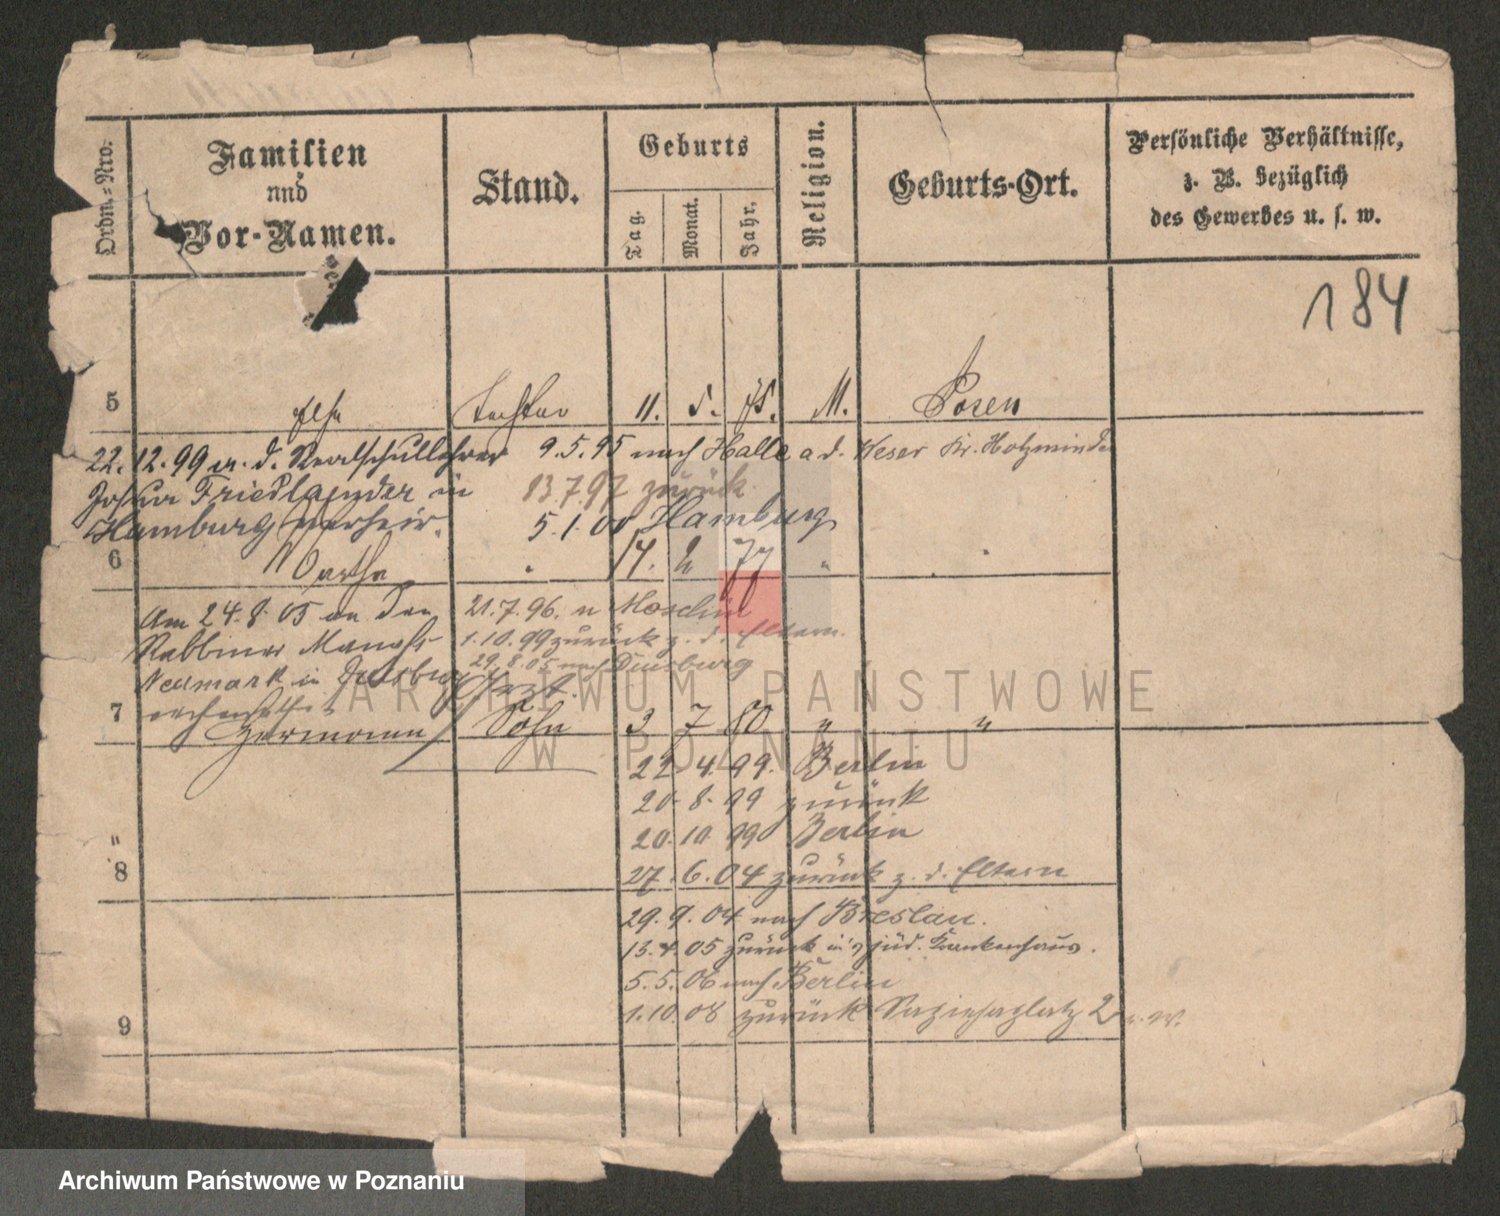 Ordn.=Nro.
Familien
und
Vor-Namen.
Stand.
Geburts
Tag.
Monat.
Jahr.
Religion.
Geburts-Ort.
Persönliche Verhältnisse,
z. B. bezüglich
des Gewerbes u. s. w.
184
5 Else Tochter 11. 5. M. Posen
22.12.99 m. d. Realschullehrer
9.5.95 nach Halle a d. Weser Kr. Holzminden
Friedlaender in
13.7.97 zurück
Hamburg verheir.
5.1.00 Hamburg
6 Martha " 14. 2 77 " "
Am 24.8.05 an den
21.7.96. n Moschin
Rabbiner
1.10.99 zurück z. d. Eltern.
Neumark in Duisburg
29.8.05 nach Duisburg
Arzt.
7 Hermann Sohn 3 7 80 " "
22.4.99. Berlin
20.8.99 zurück
20.10.99 Berlin
" 8
27.6.04 zurück z. d. Eltern
29.9.04 nach Breslau.
13.4.05 zurück in's jüd. Krankenhaus.
5.5.06 nach Berlin
1.10.08 zurück Sapiehaplatz 2
9
ARCHIWUM PAŃSTWOWE
W POZNANIU
Archiwum Państwowe w Poznaniu